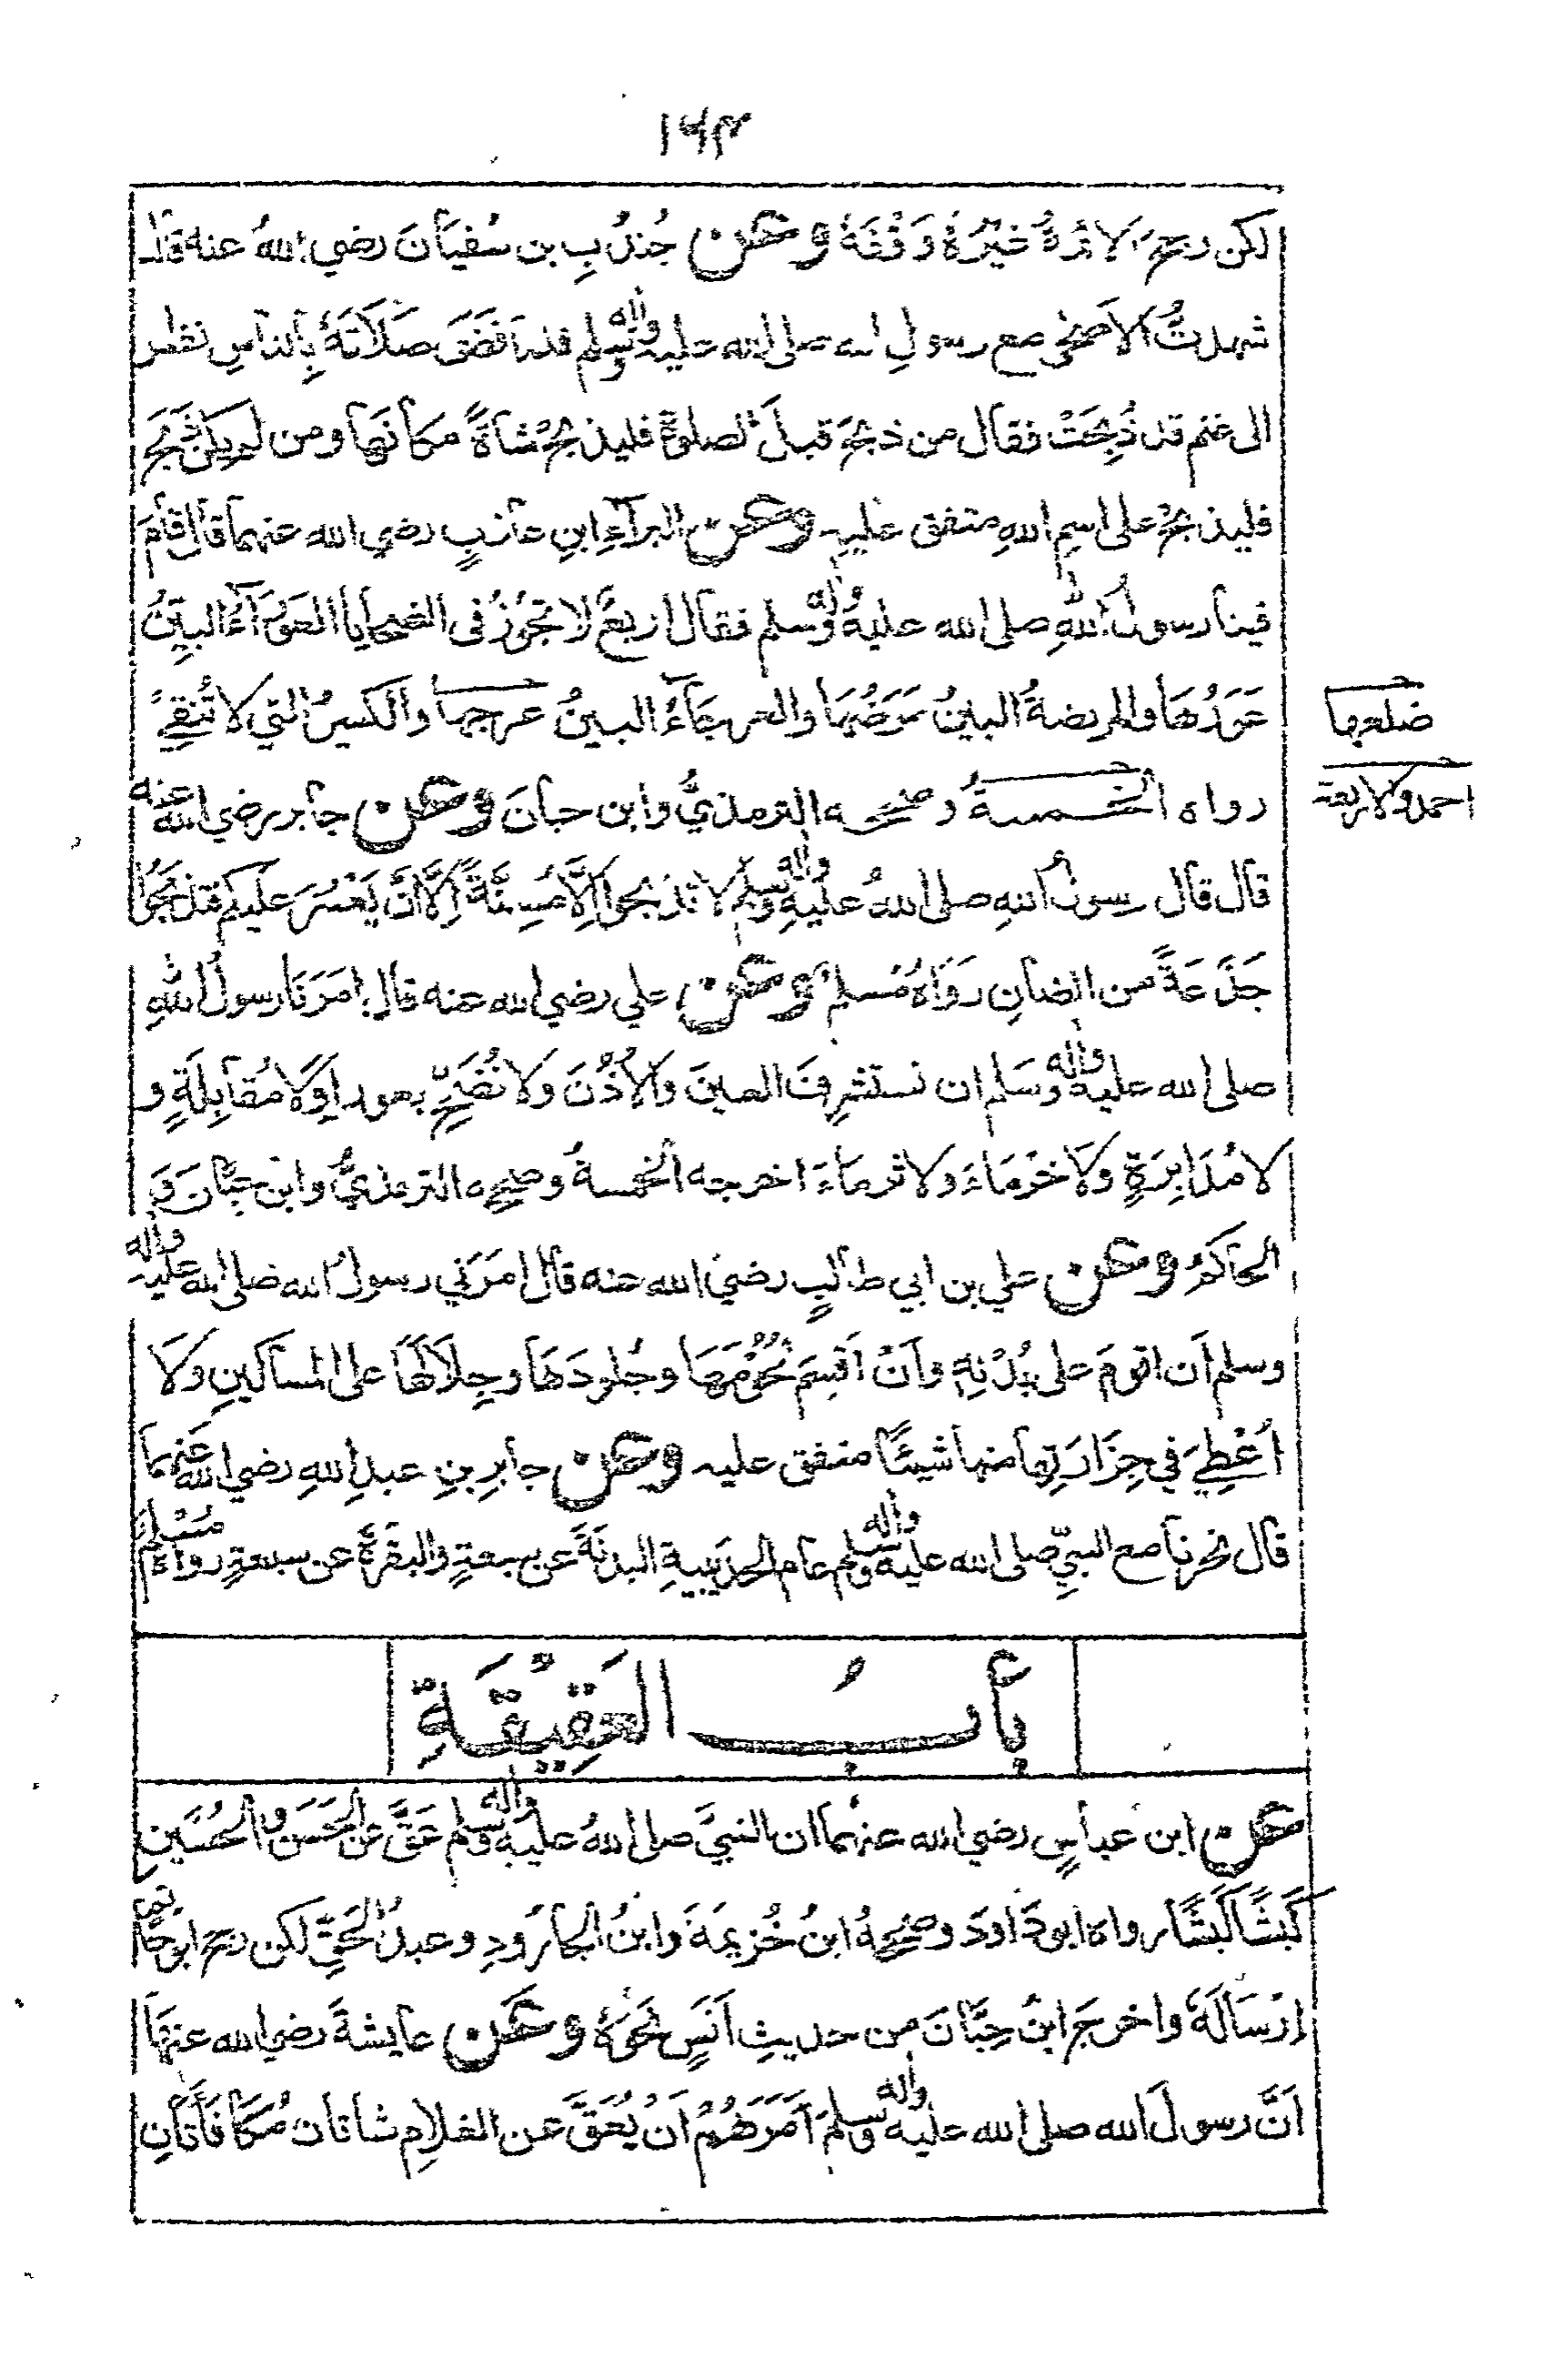 ١٦٣
لكن رجح الائمة غيره وقفه وعن جندب بن سفيان رضي الله عنه قال
شهدت الاضحى مع رسول الله صلى الله عليه واله وسلم فلما قضى صلاته بالناس نظر
الى غنم قد ذبحت فقال من ذبح قبل الصلوة فليذبح شاة مكانها ومن لم يكن ذبح
فليذبح على اسم الله متفق عليه وعن البراء ابن عازب رضي الله عنهما قال قام
فينا رسول الله صلى الله عليه واله وسلم فقال اربع لا تجوز فى الضحايا العوراء البين
عورها والمريضة البين مرضها والعرجاء البين عرجها والكسير التي لا تنقي
ضلعها
رواه الخمسة وصححه الترمذي وابن حبان وعن جابر رضي الله عنه
احمد والاربعة
قال قال رسول الله صلى الله عليه واله وسلم لا تذبحوا الا مسنة الا ان يعسر عليكم فتذبحوا
جذعة من الضان رواه مسلم وعن علي رضي الله عنه قال امرنا رسول الله
صلى الله عليه واله وسلم ان نستشرف العين والاذن ولا نضحي بعوراء ولا مقابلة و
لا مدابرة ولا خرماء ولا ثرماء اخرجه الخمسة وصححه الترمذي وابن حبان و
الحاكم وعن علي بن ابي طالب رضي الله عنه قال امرني رسول الله صلى الله عليه واله
وسلم ان اقوم على بدنه وان اقسم لحومها وجلودها وجلالها على المساكين ولا
اعطي في جزارتها منها شيئا متفق عليه وعن جابر بن عبد الله رضي الله عنهما
قال نحرنا مع النبي صلى الله عليه واله وسلم عام الحديبية البدنة عن سبعة والبقرة عن سبعة رواه مسلم
باب العقيقة
عن ابن عباس رضي الله عنهما ان النبي صلى الله عليه واله وسلم عق عن الحسن والحسين
كبشا كبشا رواه ابو داود وصححه ابن خزيمة وابن الجارود وعبد الحق لكن رجح ابو حاتم
ارساله واخرج ابن حبان من حديث انس نحوه وعن عايشة رضي الله عنها
ان رسول الله صلى الله عليه واله وسلم امرهم ان يعق عن الغلام شاتان مكافأتان